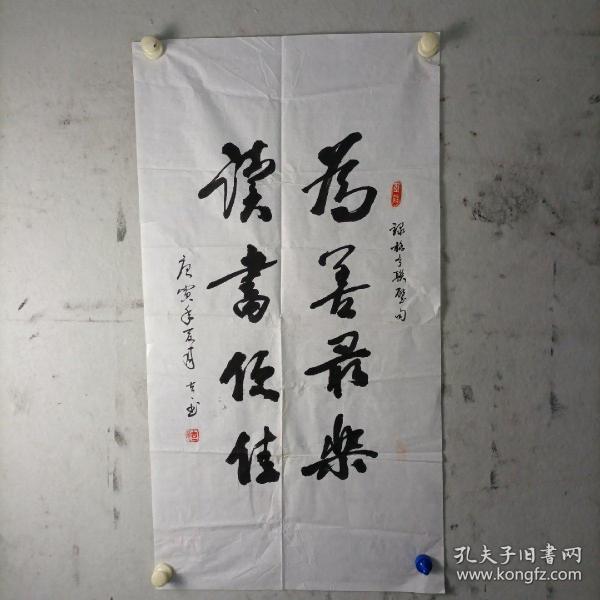 為善最樂
讀書便佳
庚寅年夏月
書
孔夫子旧书网
www.kongfz.com